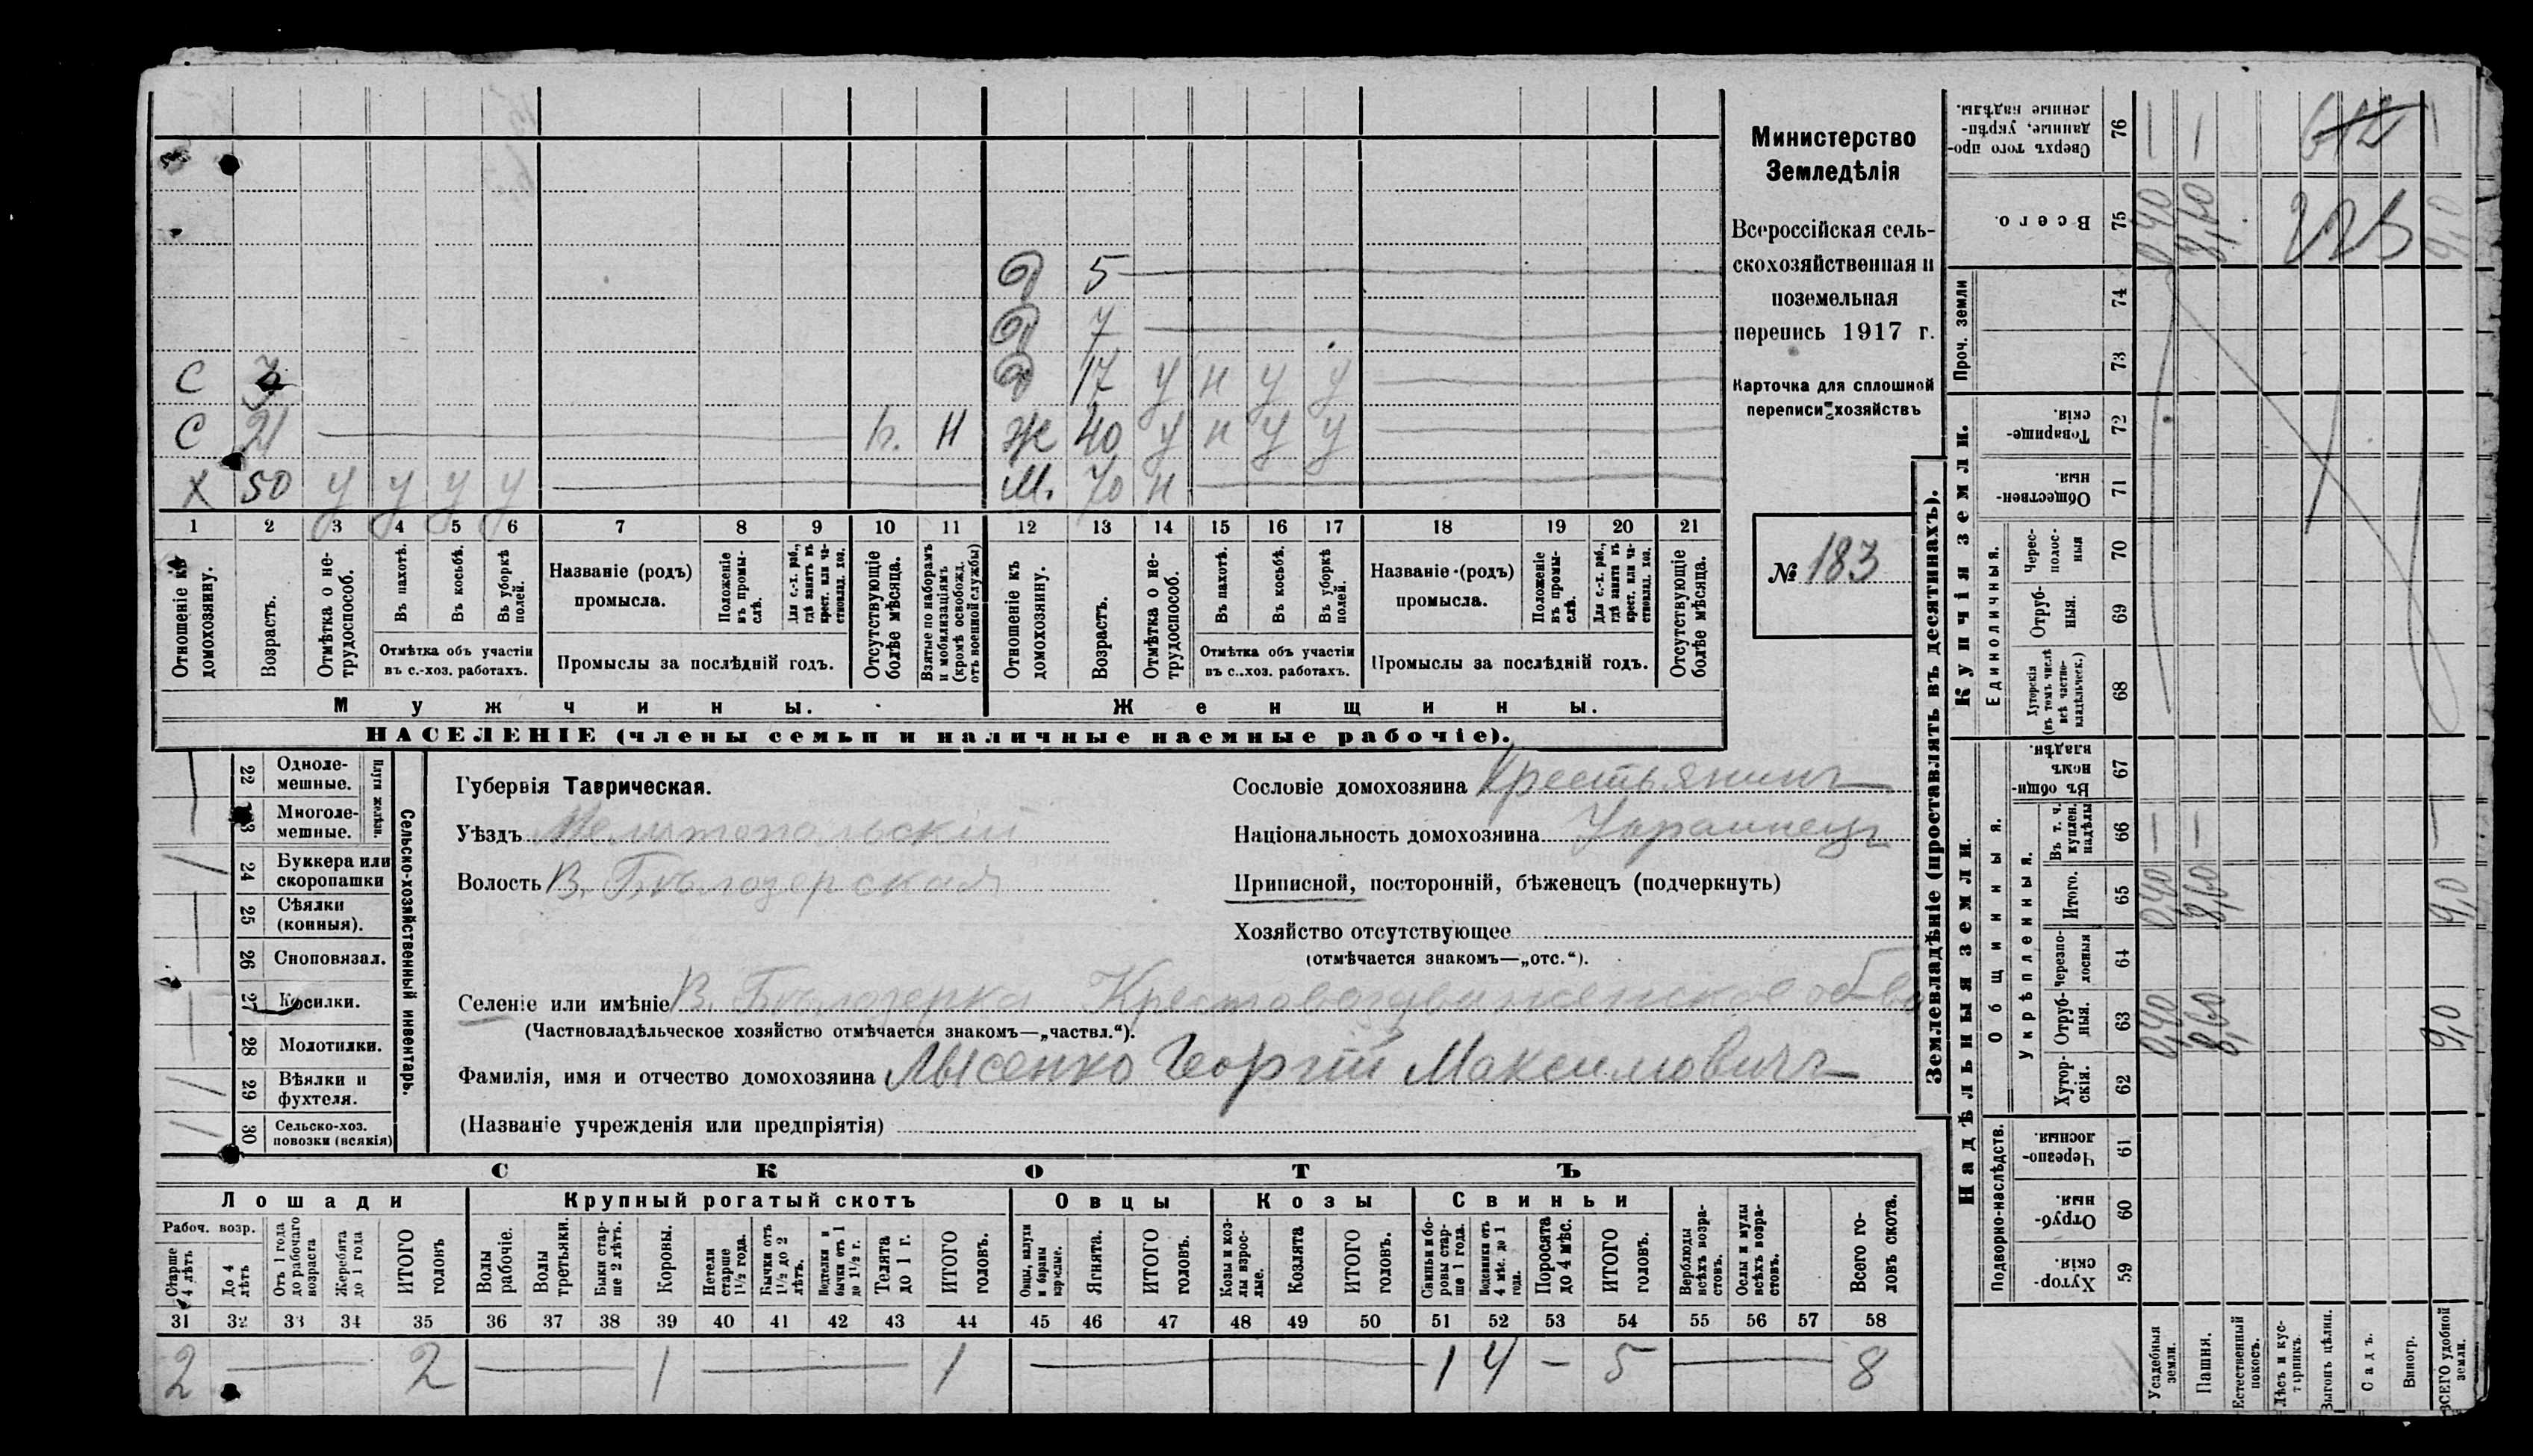 Министерство
Земледѣлія
Всероссійская сель-
скохозяйственная и
поземельная
перепись 1917 г.
Карточка для сплошной
переписи хозяйствъ
№ 183
Д 5
Д 7
С 3 Д 17 у н у у
С 21 Н Ж 40 у н у у
Х 50 у у у у М. 70 н
1 2 3 4 5 6 7 8 9 10 11 12 13 14 15 16 17 18 19 20 21
Отношеніе къ домохозяину.
Возрастъ.
Отмѣтка о не-трудоспособ.
Въ пахотѣ.
Въ косьбѣ.
Въ уборкѣ полей.
Отмѣтка объ участіи
въ с.-хоз. работахъ.
Названіе (родъ)
промысла.
Положеніе въ промы-слѣ.
Для с.-х. раб., гдѣ занятъ въ крест. или ча-стновлад. хоз.
Промыслы за послѣдній годъ.
Отсутствующіе болѣе мѣсяца.
Взятые по наборамъ и мобилизаціямъ (кромѣ освобожд. отъ военной службы)
Отношеніе къ домохозяину.
Возрастъ.
Отмѣтка о не-трудоспособ.
Въ пахотѣ.
Въ косьбѣ.
Въ уборкѣ полей.
Отмѣтка объ участіи
въ с.-хоз. работахъ.
Названіе (родъ)
промысла.
Положеніе въ промы-слѣ.
Для с.-х. раб., гдѣ занята въ крест. или ча-стновлад. хоз.
Промыслы за послѣдній годъ.
Отсутствующіе болѣе мѣсяца.
Мужчины. Женщины.
НАСЕЛЕНІЕ (члены семьи и наличные наемные рабочіе).
Сельско-хозяйственный инвентарь.
Плуги желѣзн.
22 Одноле-мешные.
23 Многоле-мешные.
24 Буккера или скоропашки /
25 Сѣялки (конныя).
26 Сноповязал.
27 Косилки.
28 Молотилки.
29 Вѣялки и фухтеля. /
30 Сельско-хоз. повозки (всякія) /
Губернія Таврическая.
Уѣздъ Мелитопольскій
Волость В. Бѣлозерская
Сословіе домохозяина Крестьянинъ
Національность домохозяина Украинецъ
Приписной, посторонній, бѣженецъ (подчеркнуть)
Хозяйство отсутствующее
(отмѣчается знакомъ—„отс.“).
Селеніе или имѣніе В. Бѣлозерка Крестовоздвиженское об-во
(Частновладѣльческое хозяйство отмѣчается знакомъ—„частвл.“).
Фамилія, имя и отчество домохозяина Лысенко Георгій Максимовичъ
(Названіе учрежденія или предпріятія)
СКОТЪ
Лошади Крупный рогатый скотъ Овцы Козы Свиньи
Рабоч. возр.
Старше 4 лѣтъ
До 4 лѣтъ
Отъ 1 года до рабочаго возраста
Жеребята до 1 года
ИТОГО головъ
Волы рабочіе.
Волы третьяки.
Быки стар-ше 2 лѣтъ.
Коровы.
Нетели старше 1½ года.
Бычки отъ 1½ до 2 лѣтъ.
Подтелки и бычки отъ 1 до 1½ г.
Телята до 1 г.
ИТОГО головъ.
Овцы, валухи и бараны взрослые.
Ягнята.
ИТОГО головъ.
Козы и коз-лы взрос-лые.
Козлята
ИТОГО головъ.
Свиньи и бо-ровы стар-ше 1 года.
Подсвинки отъ 4 мѣс. до 1 года.
Поросята до 4 мѣс.
ИТОГО головъ.
Верблюды всѣхъ возра-стовъ.
Ослы и мулы всѣхъ возра-стовъ.
Всего го-ловъ скота.
31 32 33 34 35 36 37 38 39 40 41 42 43 44 45 46 47 48 49 50 51 52 53 54 55 56 57 58
2 — 2 — 1 — 1 — 1 4 — 5 — 8
Землевладѣніе (проставлять въ десятинахъ).
Сверхъ того про-данные, укрѣп-ленные надѣлы. 76 — — 612 —
Всего. 75 0,40 8,60 9,0
Проч. земли 74
73
Купчія земли.
Товарище-скія. 72
Обществен-ныя 71
Единоличныя.
Черес-полос-ныя 70
Отруб-ныя. 69
Хуторскія (въ томъ числѣ всѣ частно-владѣльческ.) 68
Надѣльныя земли.
Общинныя.
Въ общин-номъ владѣн. 67
Укрѣпленныя.
Въ т. ч. куплен. надѣлы 66 — — —
Итого. 65 0,40 8,60 9,0
Черезпо-лосныя 64
Отруб-ныя. 63 0,40 8,60 9,0
Хутор-скія. 62
Подворно-наслѣдств.
Черезпо-лосныя. 61
Отруб-ныя. 60
Хутор-скія. 59
Усадебныя земли.
Пашня.
Естественный покосъ.
Лѣсъ и кус-тарникъ.
Выгонъ цѣлин.
Садъ.
Виногр.
ВСЕГО удобной земли.